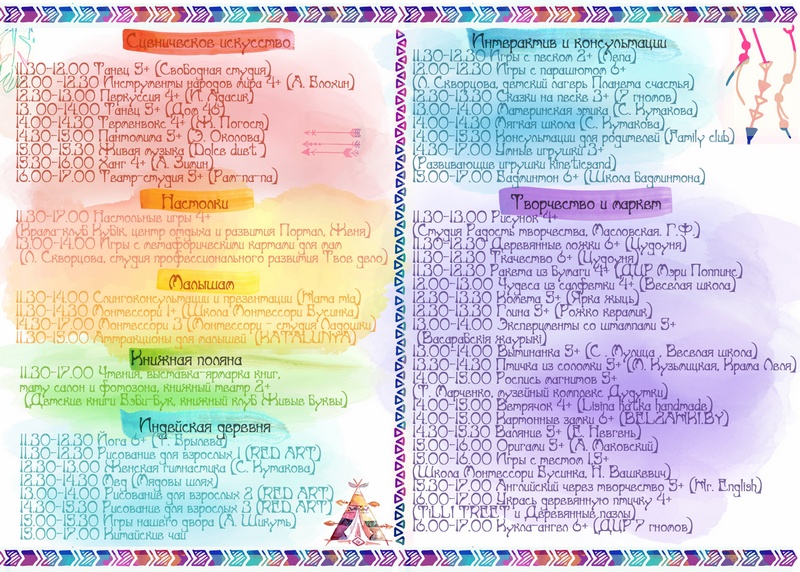 Сценическое искусство
11.30-12.00 Танец 5+ (Свободная студия)
12.00 -12.30 Инструменты народов мира 4+ (А. Блохин)
12.30-13.00 Перкуссия 4+ (И. Мдасик)
13. 00-14.00 Танец 5+ (Дом 46)
14.00-14.30 Терменвокс 4+ (Ж. Погост)
14.30-15.00 Пантомима 5+ (Э. Околова)
15.00-15.30 Живая музыка (Dolce duet )
15.30-16.00 Ханг 4+ (А. Зимин)
16.00-17.00 Театр-студия 5+ (Рам-па-па)
Настолки
11.30-17.00 Настольные игры 4+
(Крама-клуб Кубік, центр отдыха и развития Портал, Женя)
13.00-14.00 Игры с метафорическими картами для мам
(Л. Скворцова, студия профессионального развития Твое дело)
Малышам
11.30-14.00 Слингоконсультации и презентации (Mama mia)
11.30-14.30 Монтессори 1 (Школа Монтессори Бусинка)
14.30-17.00 Монтессори 3 (Монтессори - студия Ладошки)
11.30-19.00 Аттракционы для малышей (KATALUNYA)
Книжная поляна
11.30-17.00 Чтения, выставка-ярмарка книг,
мату салон и фотозона, книжный театр 2+
(Детские книги Бэби-Бук, книжный клуб Живые Буквы)
Индейская деревня
11.30-12.30 Йога 6+ Брылева)
11.30-12.30 Рисование для взрослых 1 (RED ART)
12.30-13.00 Женская гимнастика (С. Кутакова)
12.30-14.00 Мёд (Мядовы шлях)
13.00-14.00 Рисование для взрослых 2 (RED ART)
14.00-15.00 Рисование для взрослых 3 (RED ART)
15.00-15.30 Игры нашего двора (А. Шикуть)
15.00-17.00 Китайские чаи
Интерактив и консультации
11.30-12.30 Игры с песком 2+ (Лепа)
12.00-12.30 Игры с парашютом 6+
(Л. Скворцова, детский лагерь Планета счастья)
12.30-13.00 Сказки на песке 3+ (7 гномов)
13.00-14.00 Материнская этика (С. Кутакова)
14.00-15.00 Мягкая школа (С. Кутакова)
14.00-15.30 Консультации для родителей (Family club)
14.30-17.00 Умные игрушки 3+
(Развивающие игрушки kineticsand)
15.00-17.00 Бадминтон 6+ (Школа Бадминтона)
Творчество и маркет
11.30-13.00 Рисунок 4+
(Студия Радость творчества, Масловская. Г.Ф.)
11.30-12.30 Деревянные ложки 6+ (Цудоўня)
11.30-15.00 Ткачество 6+ (Цудоўня)
11.30-12.30 Ракета из бумаги 4+ (ДЦР Мэри Поппинс)
12.00-13.00 Чудеса из салфетки 4+ (Веселая школа)
12.30-13.30 Комета 5+ (Ярка жыць)
12.30-13.30 Глина 5+ (Рожко керамик)
13.00-14.00 Эксперименты со штампами 5+
(Васарабскія жаўрукі)
13.00-14.00 Вытинанка 5+ (С . Мулица , Веселая школа)
13.30-14.30 Птичка из соломки 5+ (М. Кузьмицкая, Крама Леля)
14.00-19.00 Роспись магнитов 5+
(Т. Марченко, музейный комплекс Дудутки)
14.00-15.00 Ветрячок 4+ (Lisina hatka handmade)
14.00-15.00 Картонные замки 6+ (BELZAMKI.BY)
14.30-15.30 Валяние 5+ (Е. Невгень)
15.00-16.00 Оригами 5+ (А. Маковский)
15.00-16.00 Игры с тестом 1,5+
(Школа Монтессори Бусинка, Н. Вашкевич)
15.30-17.00 Английский через творчество 5+ (Mr. English)
16.00-17.00 Укрась деревянную птичку 4+
(TILLI TREET и Деревянные пазлы)
16.00-17.00 Кукла-ангел 6+ (ДЦР 7 гномов)